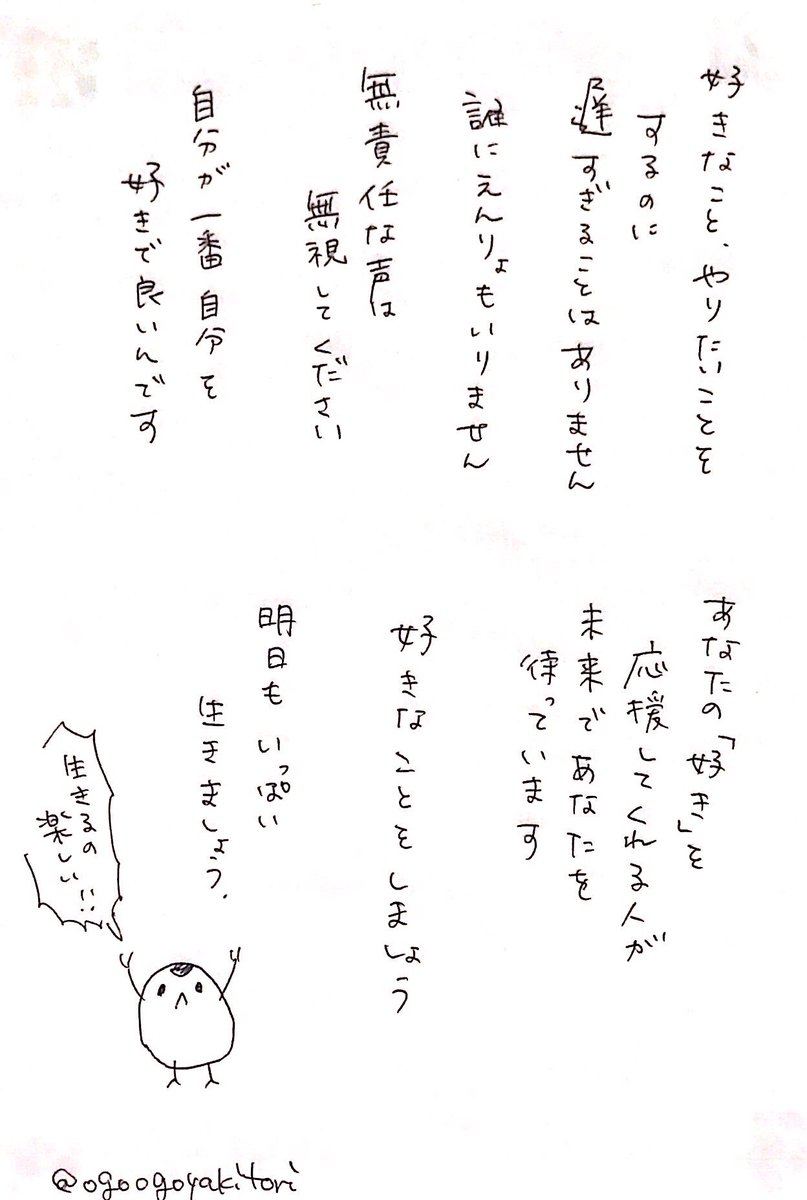 好きなこと、やりたいことを
するのに
遅すぎることはありません
誰にえんりょもいりません
無責任な声は
無視してください
自分が一番自分を
好きで良いんです
あなたの「好き」を
応援してくれる人が
未来であなたを
待っています
好きなことをしましょう
明日もいっぱい
生きましょう.
生きるの
楽しい!!
@ogoogoyakitori